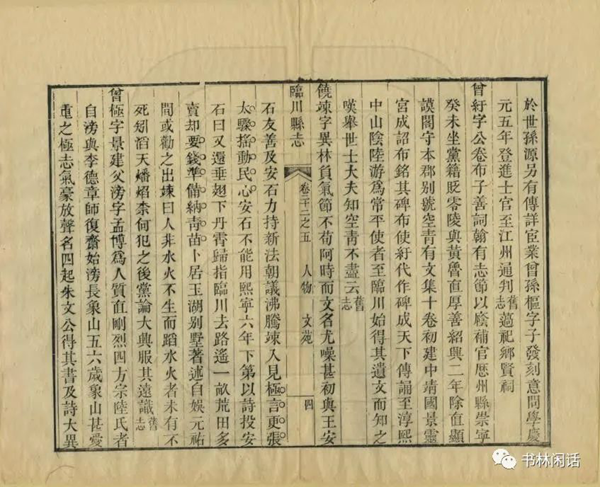 於世孫源另有傳詳宦業曾孫樞字子發刻意問學慶
元五年登進士官至江州通判舊志𦵏祀鄉賢祠
曾紆字公卷布子善詞翰有志節以廕補官歷州縣崇寧
癸未坐黨籍貶零陵與黃魯直厚善紹興二年除直顯
謨閣守本郡別號空青有文集十卷初建中靖國景靈
宮成詔布銘其碑布使紆代作碑成天下傳誦至淳熙
中山陰陸游為常平使者至臨川始得其遺文而知之
嘆舉世士大夫知空青不盡云舊志
饒竦字異林負氣節不苟阿時而文名尤噪甚初與王安
臨川縣志 卷三之五 人物 文苑 四
石友善及安石力持新法朝議沸騰竦入見極言更張
太驟搖動民心安石不能用熙寧六年下第以詩投安
石曰又還垂翅下丹霄歸指臨川去路遙一畝荒田多
賣却要錢準備納青苗卜居玉湖別墅著述自娛元祐
間或勸之出竦曰人非水火不生而蹈水火者未有不
死矧滔天燔焰柰何犯之後黨論大興服其遠識舊志
曾極字景建父滂字孟博為人質直剛烈四方宗陸氏者
自滂與李德章師復齋始滂長象山五六歲象山甚愛
重之極志氣豪放聲名四起朱文公得其書及詩大異
书林闲话